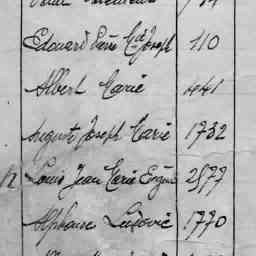 Edouard Pierre Mie Joseph 110
Albert Marie 441
Auguste Joseph Marie 1732
Louis Jean Marie Eugène 2977
Alphonse Ludovic 1770